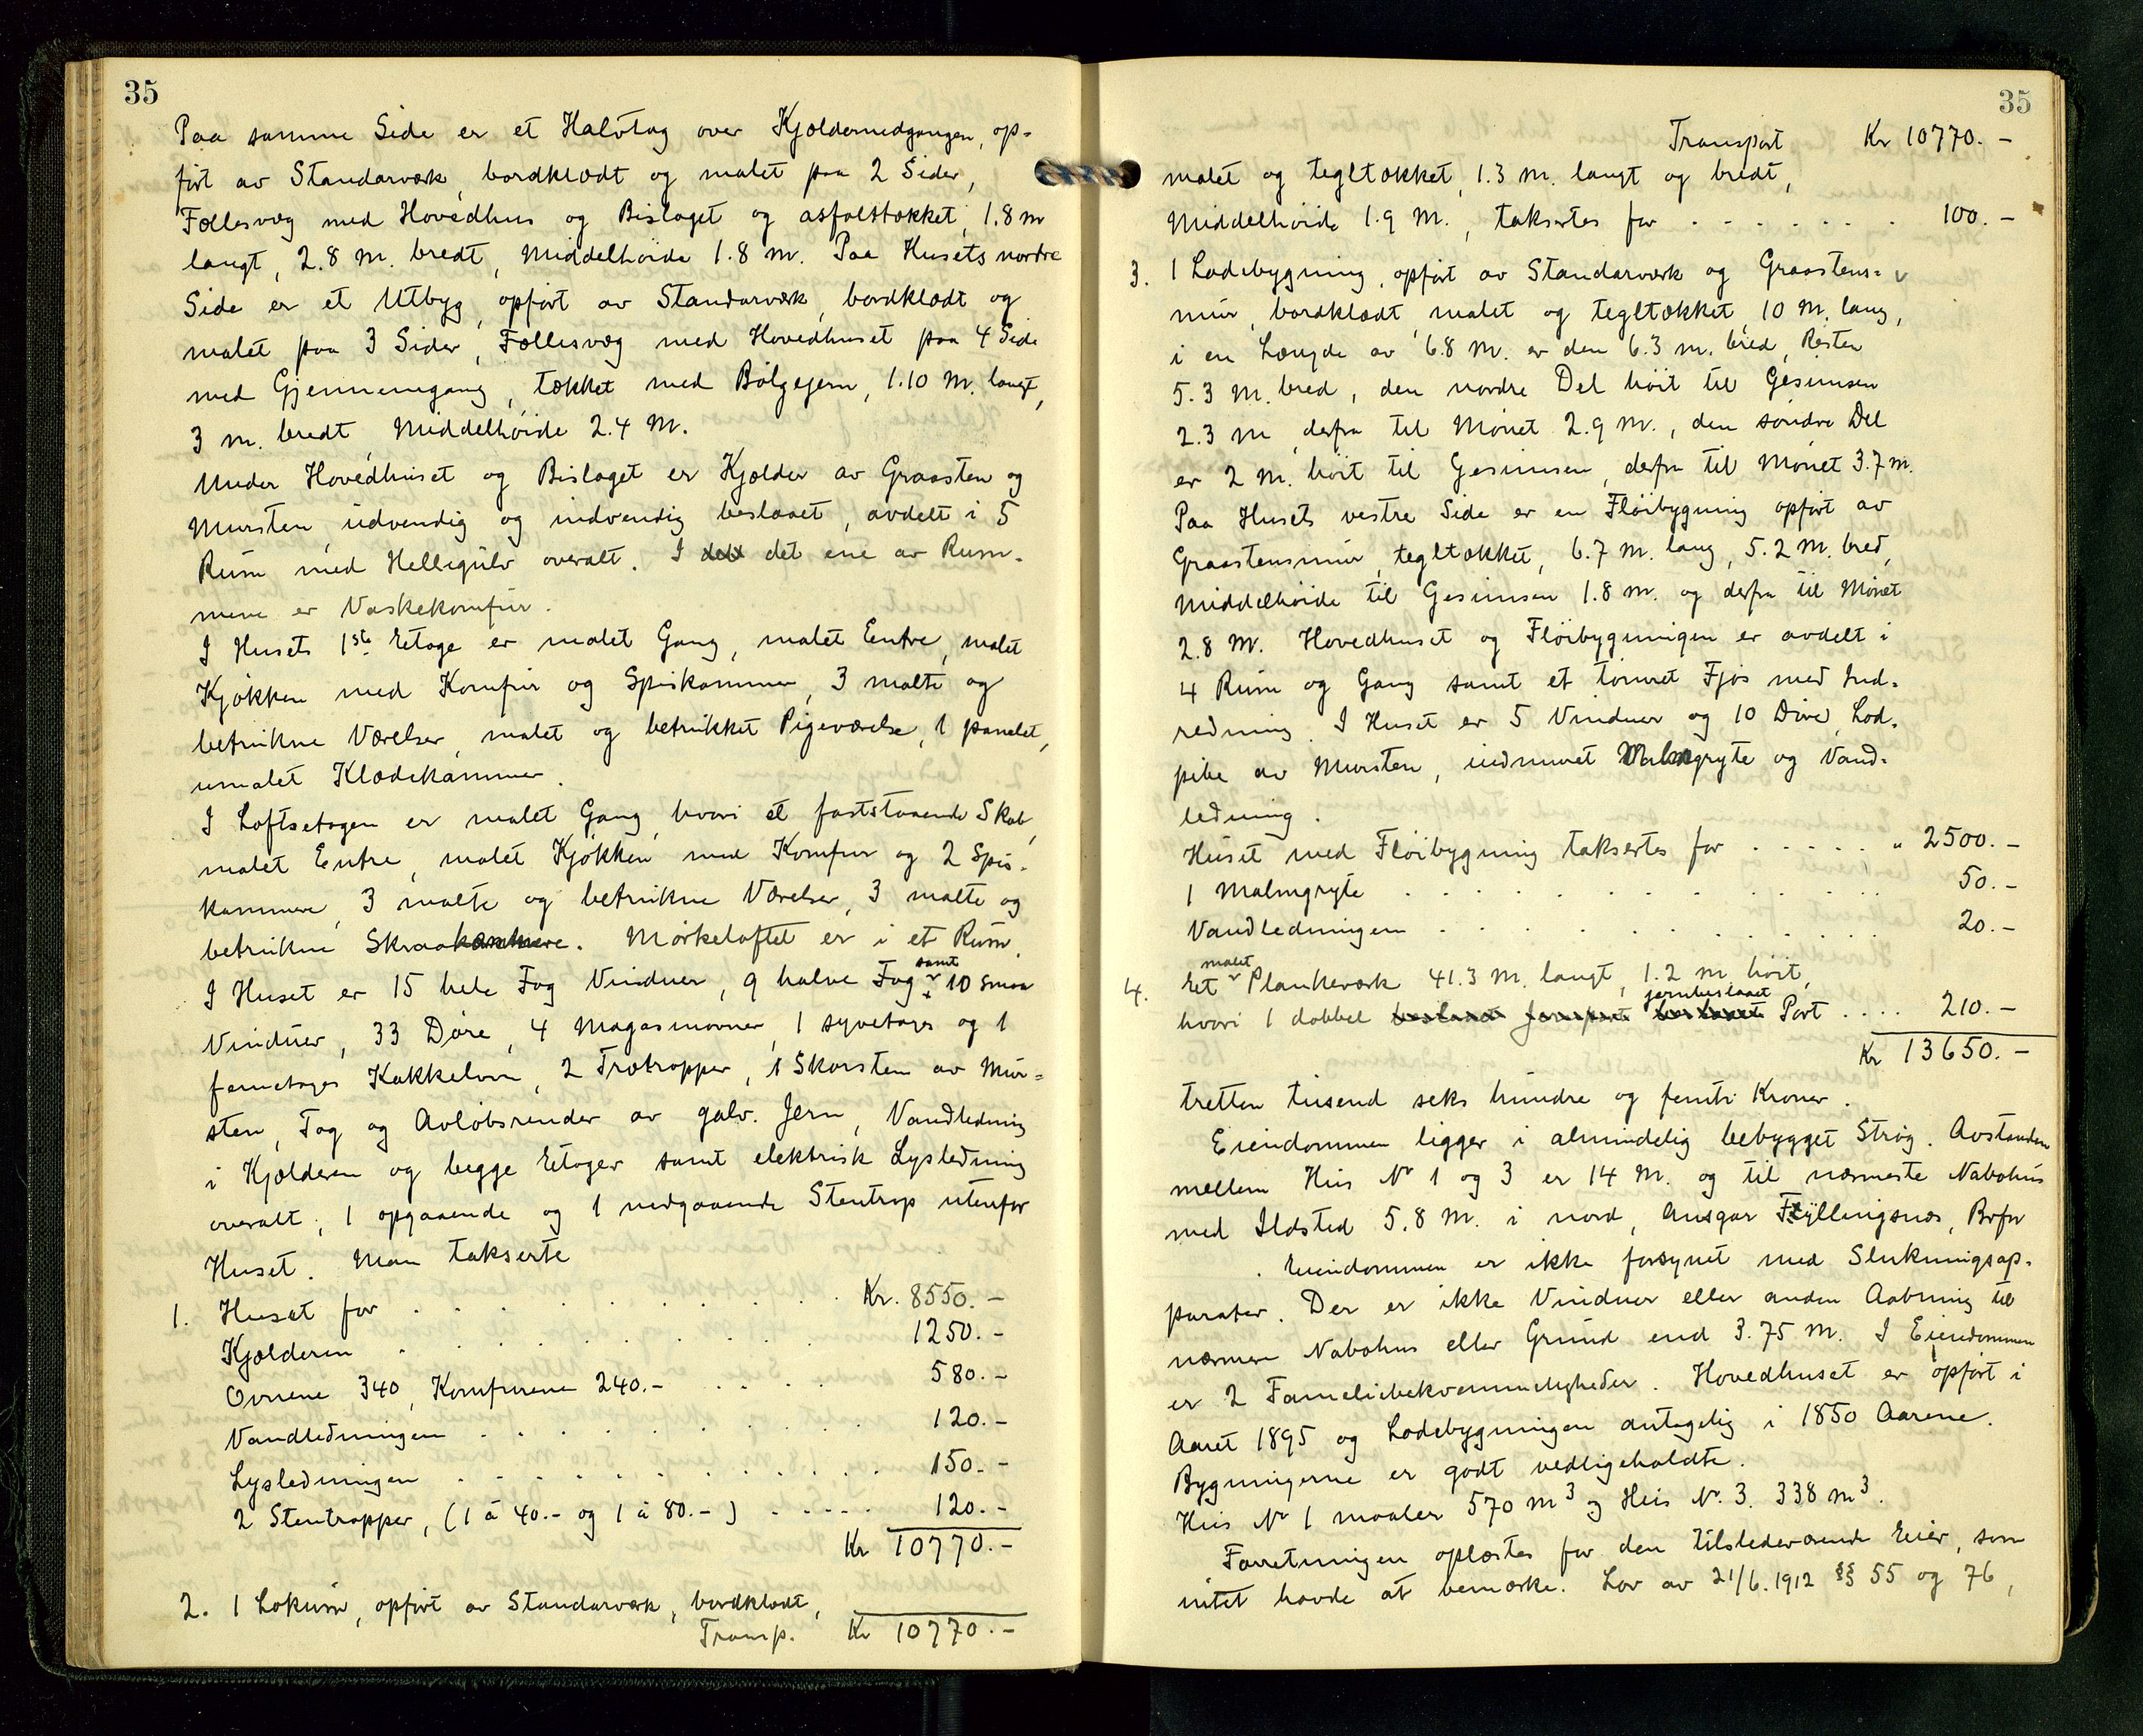 35
Paa samme Side er et Halvtag over Kjældernedgangen, op-
ført av Standarværk, bordklædt og malet paa 2 Sider,
Fællesvæg med Hovedhus og Bislaget og asfaltækket, 1.8 m
langt, 2.8 m. bredt, Middelhøide 1.8 m. Paa Husets nordre
Side er et Utbyg, opført av Standarværk, bordklædt og
malet paa 3 Sider, Fællesvæg med Hovedhuset paa 4 Side
med Gjennemgang, tækket med Bølgejern, 1.10 m. langt,
3 m. bredt, Middelhøide 2.4 m.
Under Hovedhuset og Bislaget er Kjælder av Graasten og
Mursten, udvendig og indvendig beslaaet, avdelt i 5
Rum med Hellegulv overalt. I det det ene av Rum-
mene er Vaskekomfur.
I Husets 1ste Etage er malet Gang, malet Entre, malet
Kjøkken med Komfur og Spiskammer, 3 malte og
betrukne Værelser, malet og betrukket Pigeværelse, 1 panelet,
umalet Klædekammer.
I Loftsetagen er malet Gang, hvori et faststaaende Skab,
malet Entre, malet Kjøkken med Komfur og 2 Spis-
kammere, 3 malte og betrukne Værelser, 3 malte og
betrukne Skraakammere. Mørkeloftet er i et Rum.
I Huset er 15 hele Fag Vinduer, 9 halve Fag samt 10 smaa
Vinduer, 33 Døre, 4 Magasinovner, 1 syvetages og 1
femetages Kakkelovn, 2 Trætrapper, 1 Skorsten av Mur-
sten, Tag og Avløbsrender av galv. Jern, Vandledning
i Kjælderen og begge Etager samt elektrisk Lysledning
overalt, 1 opgaaende og 1 nedgaaende Stentrap utenfor
Huset. Man takserte
1. Huset for . . . . . . . . . . Kr. 8550.-
Kjælderen . . . . . . . . 1250.-
Ovnene 340, Komfurene 240.- . . . . 580.-
Vandledningen . . . . . . . . 120.-
Lysledningen . . . . . . . . . . . 150.-
2 Stentrapper, (1 à 40.- og 1 à 80.-) . . . . . 120.-
Kr 10770.-
2. 1 Lokum, opført av Standarværk, bordklædt,
Transp. Kr 10770.-
35
Transport Kr 10770.-
malet og tegltækket, 1.3 m. langt og bredt,
Middelhøide 1.9 M., taksertes for . . . . . . . 100.-
3. 1 Ladebygning, opført av Standarværk og Graastens-
mur, bordklædt, malet og tegltækket, 10 M. lang,
i en Længde av 6.8 M. er den 6.3 m. bred, Resten
5.3 M. bred, den nordre Del høit til Gesimsen
2.3 m, derfra til Mønet 2.9 M., den søndre Del
er 2 M. høit til Gesimsen, derfra til Mønet 3.7 m.
Paa Husets vestre Side er en Fløibygning opført av
Graastensmur, tegltækket, 6.7 M. lang, 5.2 M. bred,
Middelhøide til Gesimsen 1.8 M. og derfra til Mønet
2.8 M. Hovedhuset og Fløibygningen er avdelt i
4 Rum og Gang samt et tømret Fjøs med Ind-
redning. I Huset er 5 Vinduer og 10 Døre, Lod-
pibe av Mursten, indmuret Malmgryte og Vand-
ledning.
Huset med Fløibygning taksertes for . . . . . " 2500.-
1 Malmgryte . . . . . . . . . . 50.-
Vandledningen . . . . . . . . . 20.-
4. Et malet Plankeværk 41.3 M. langt, 1.2 m. høit,
hvori 1 dobbel jernbeslaaet Port . . . . 210.-
Kr 13650.-
tretten tusend seks hundre og femti Kroner.
Eiendommen ligger i almindelig bebygget Strøg. Avstanden
mellem Hus No 1 og 3 er 14 M. og til nærmeste Nabohus
med Ildsted 5.8 M. i nord, Ansgar Fyllingsnæs, Brfr
Eiendommen er ikke forsynet med Slukningsap-
parater. Der er ikke Vinduer eller anden Aabning til
nærmere Nabohus eller Grund end 3.75 M. I Eiendommen
er 2 Familiebekvemmeligheder. Hovedhuset er opført i
Aaret 1895 og Ladebygningen antagelig i 1850 Aarene.
Bygningerne er godt vedligeholdte.
Hus No 1 maaler 570 m3 og Hus No. 3. 338 m3.
Forretningen oplæstes for den tilstedeværende Eier, som
intet havde at bemærke. Lov av 21/6. 1912 §§ 55 og 76,